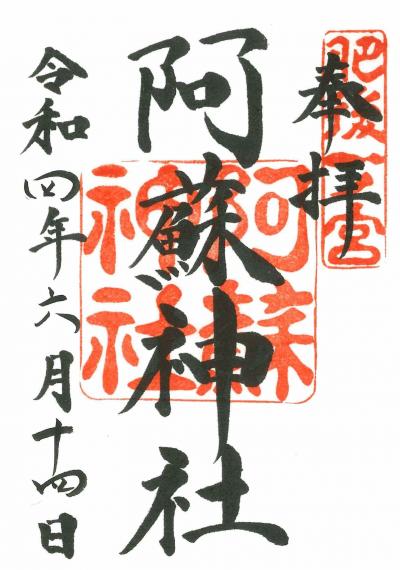 奉拝
肥後一宮
阿蘇神社
阿蘇神社
令和四年六月十四日